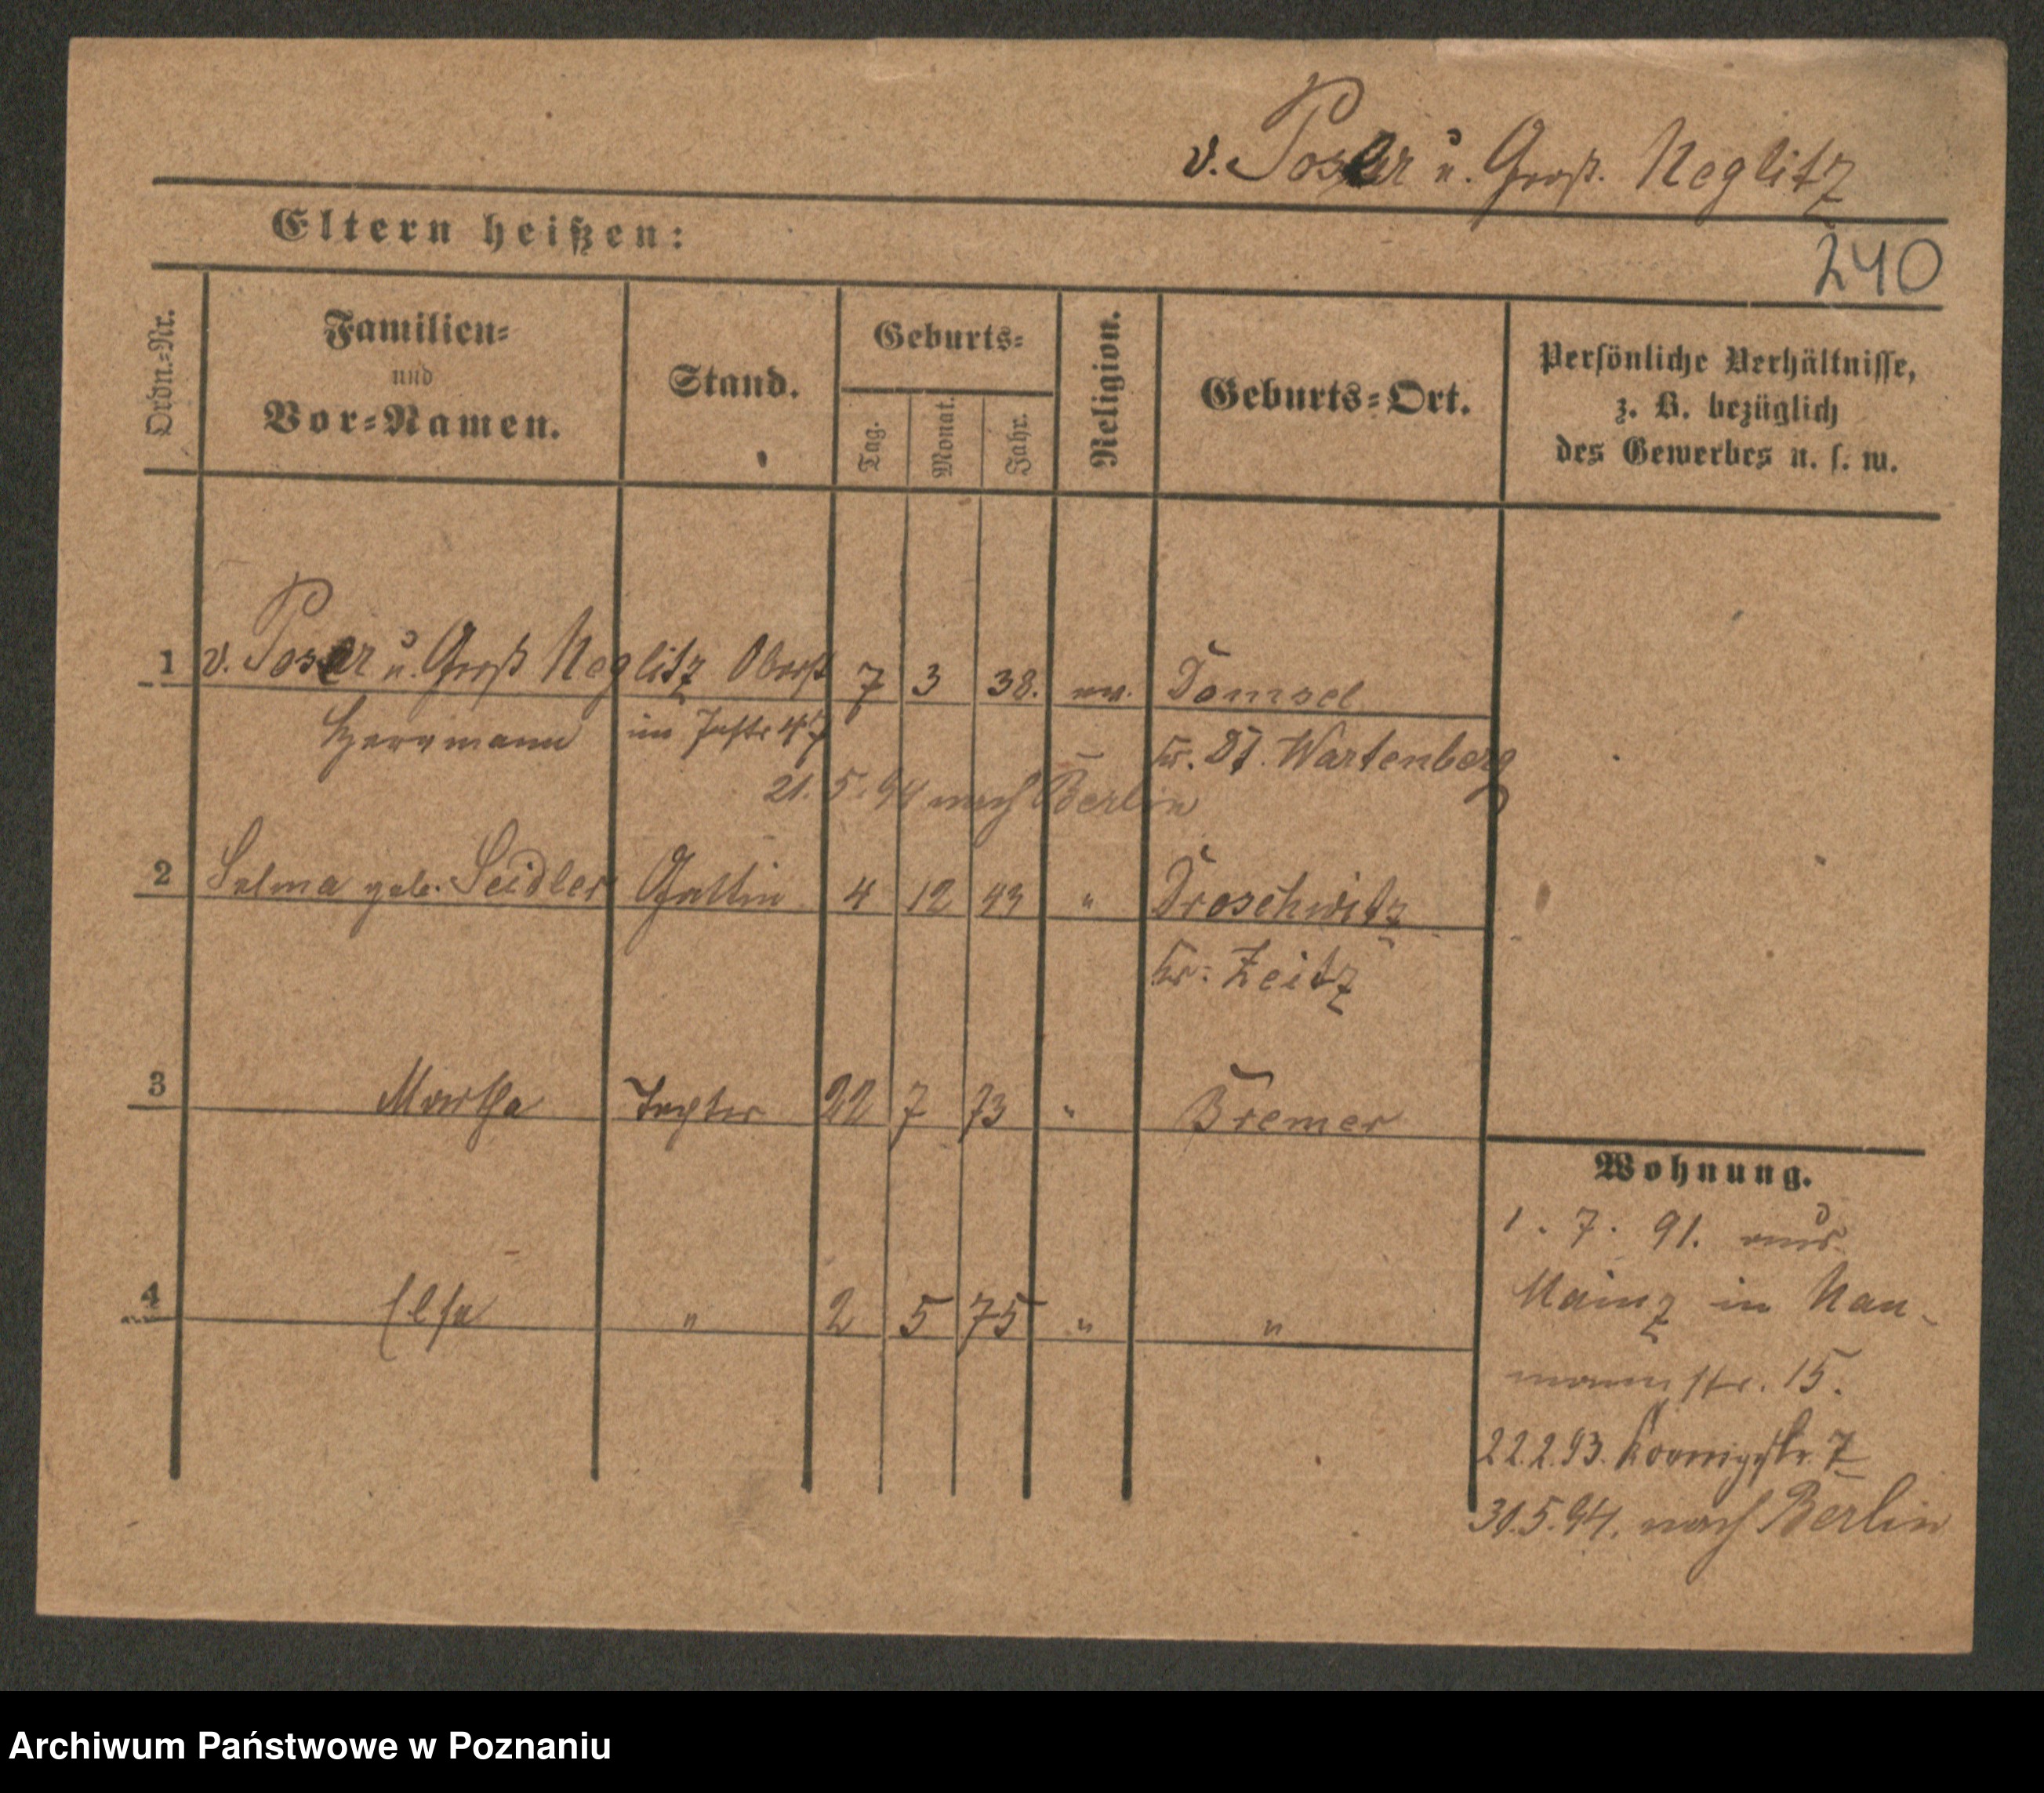 v. Poser u. Groß. Neglitz
Eltern heißen:
240
Ordn.-Nr.
Familien-
und
Vor-Namen.
Stand.
Geburts-
Tag.
Monat.
Jahr.
Religion.
Geburts-Ort.
Persönliche Verhältnisse,
z. B. bezüglich
des Gewerbes u. s. w.
1 v. Poser u. Groß Neglitz Oberst 7 3 38. ev. Domsel
Herrmann im Inftr 47 Kr. Dt. Wartenberg
21. 5. 94 nach Berlin
2 Selma geb. Seidler Gattin 4 12 43 " Droschwitz
Kr. Zeitz
3 Martha Tochter 22 7 73 " Bremer
Wohnung.
1. 7. 91. aus
4 Elsa " 2 5 75 " "
Mainz in Nau-
mannstr. 15.
22.2.93. Koenigstr. 7
31.5.94. nach Berlin
Archiwum Państwowe w Poznaniu